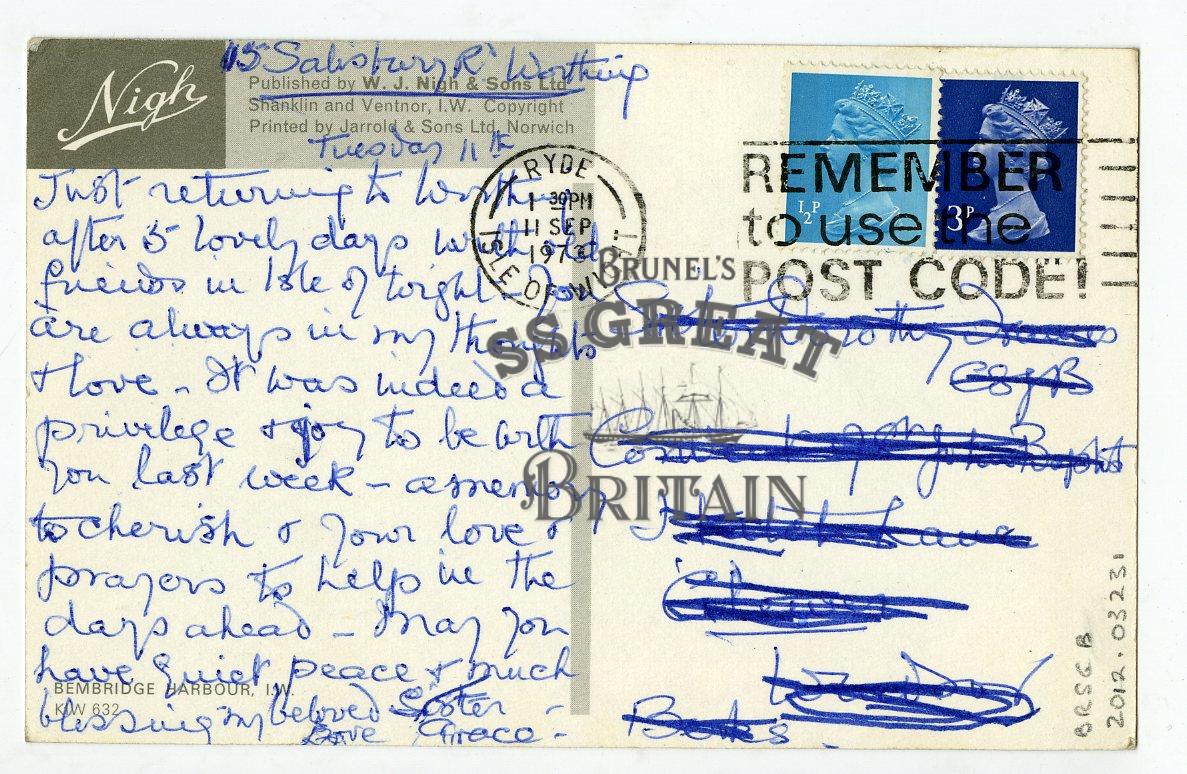 Nigh
15 Salisbury Rd Worthing
Published by W. J. Nigh & Sons Ltd
Shanklin and Ventnor, I.W. Copyright
Printed by Jarrold & Sons Ltd, Norwich
Tuesday 11th
Just returning to Worthing
after 5 lovely days with old
friends in Isle of Wight - You
are always in my thoughts
& love - It was indeed a
privilege & joy to be with
you last week - a memory
to cherish & your love &
prayers to help in the
days ahead - May you
have quiet peace & much
blessing my beloved Sister
Love Grace -
BEMBRIDGE HARBOUR, I.W.
KIW 632
RYDE
1 30PM
11 SEP
1973
ISLE OF
REMEMBER
to use the
POST CODE!
½P
3P
BRUNEL'S
SS GREAT
BRITAIN
Sister Dorothy
Convent of John Baptist
Lane
Clewer
Windsor
Berks.
BRSGB
2012.03231